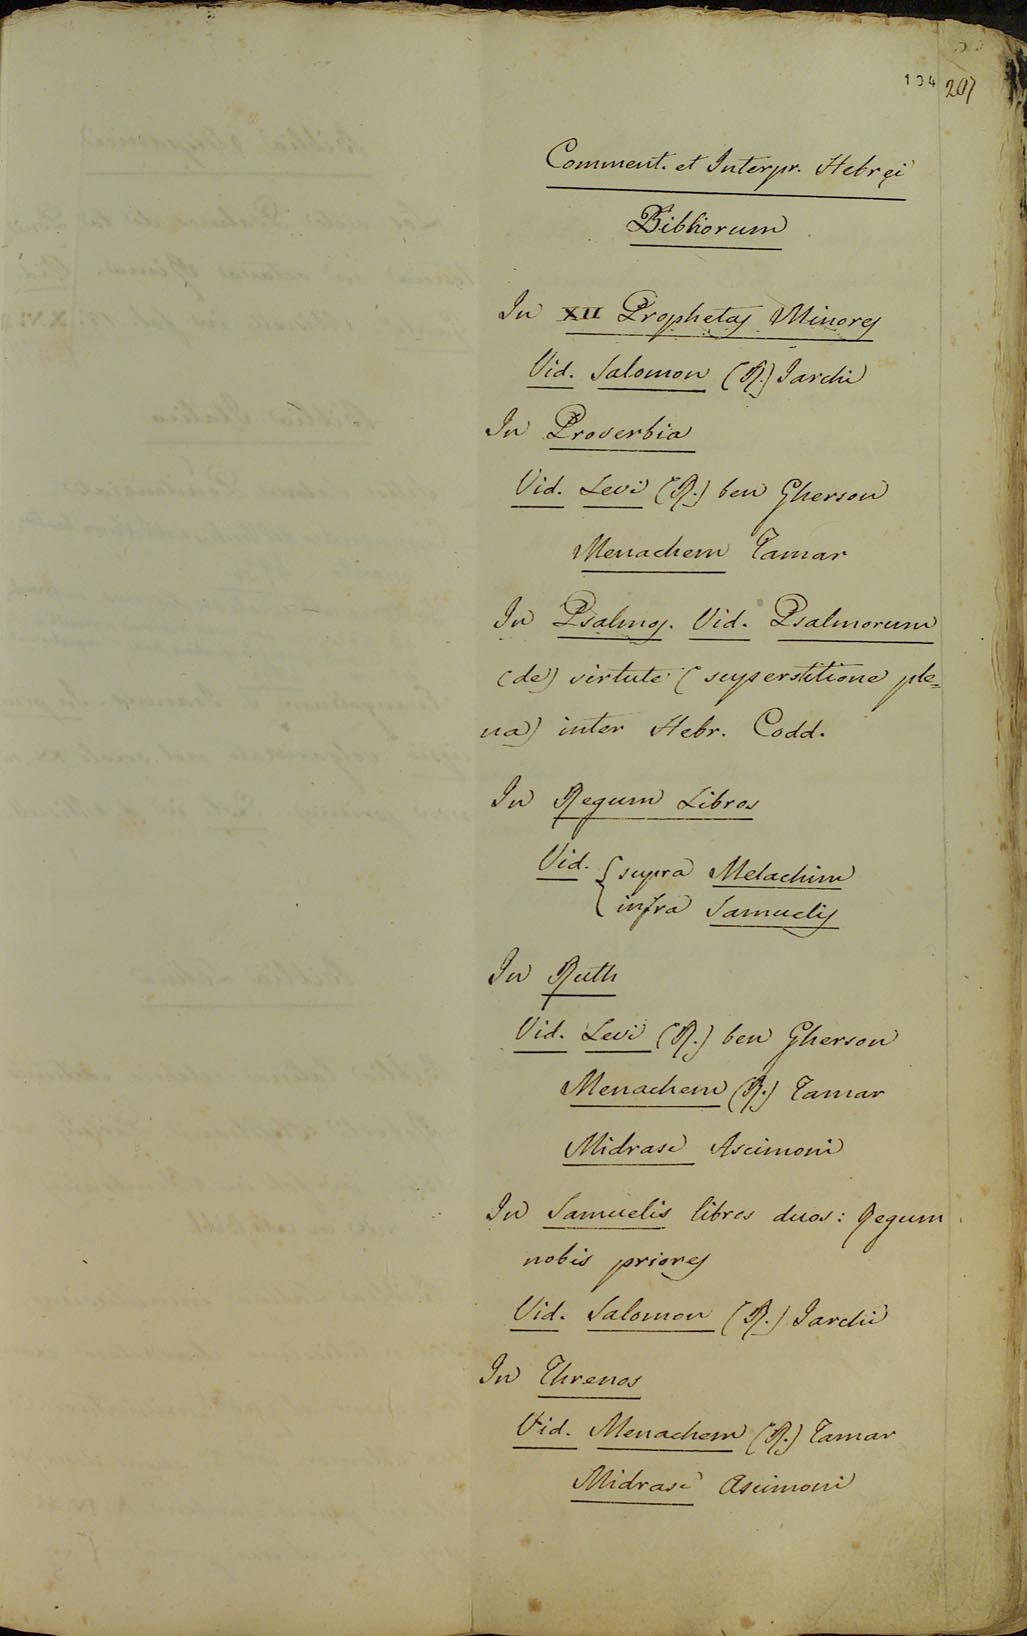 134 207
Comment. et Interpr. Hebręi
Bibliorum
In XII Prophetas Minores
Vid. Salomon (R.) Jarchi
In Proverbia
Vid. Levi (R.) ben Gherson
Menachem Tamar
In Psalmos. Vid. Psalmorum
(de) virtute (superstitione ple=
na) inter Hebr. Codd.
In Regum Libros
Vid. { supra Melachim
infra Samuelis
In Ruth
Vid. Levi (R.) ben Gherson
Menachem (R.) Tamar
Midrasc Ascimoni
In Samuelis libros duos: Regum
nobis priores
Vid. Salomon (R.) Jarchi
In Threnos
Vid. Menachem (R.) Tamar
Midrasc Ascimoni